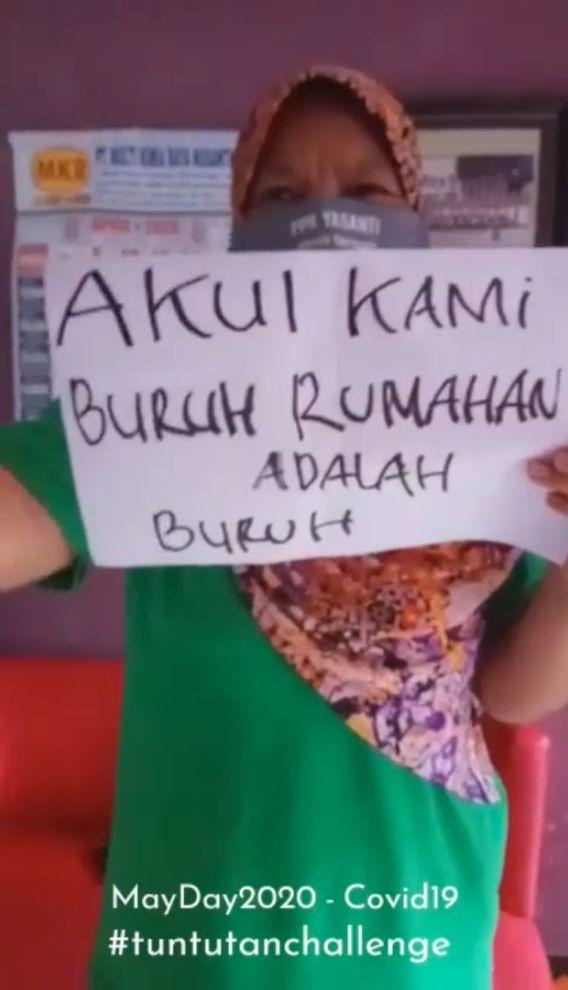 MKR
APRIL
PPR YASANTI
AKUI KAMi
BURUH RUMAHAN
ADALAH
BURUH
MayDay2020 - Covid19
#tuntutanchallenge